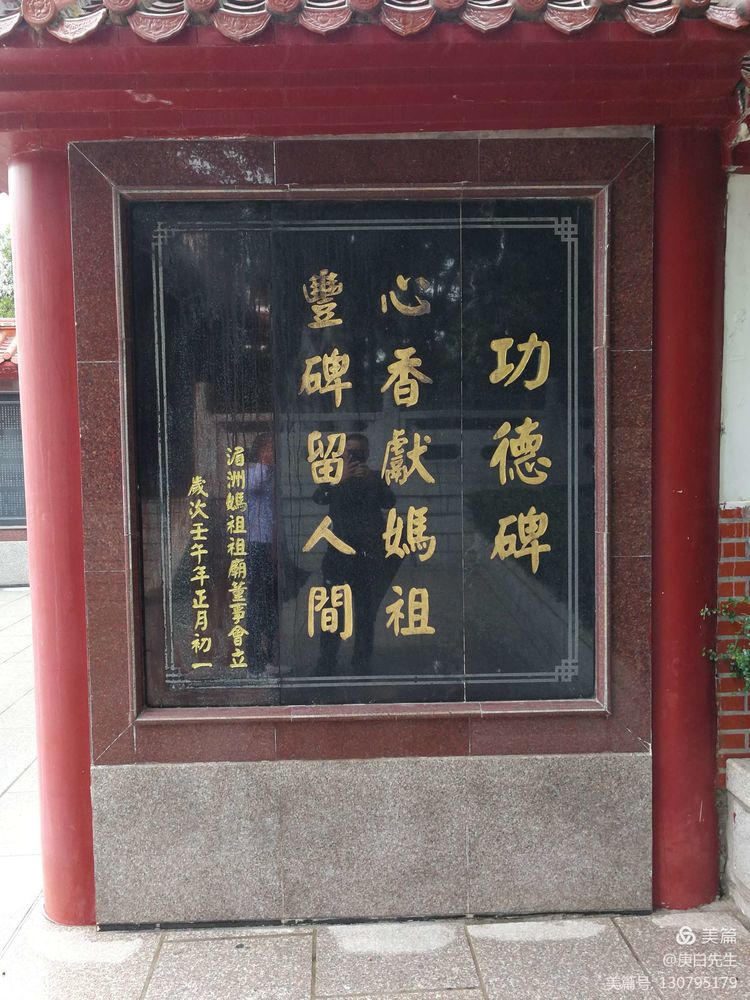 功德碑
心香獻媽祖
豐碑留人間
湄洲媽祖祖廟董事會立
歲次壬午年正月初一
美篇
@庚白先生
美篇号: 130795179